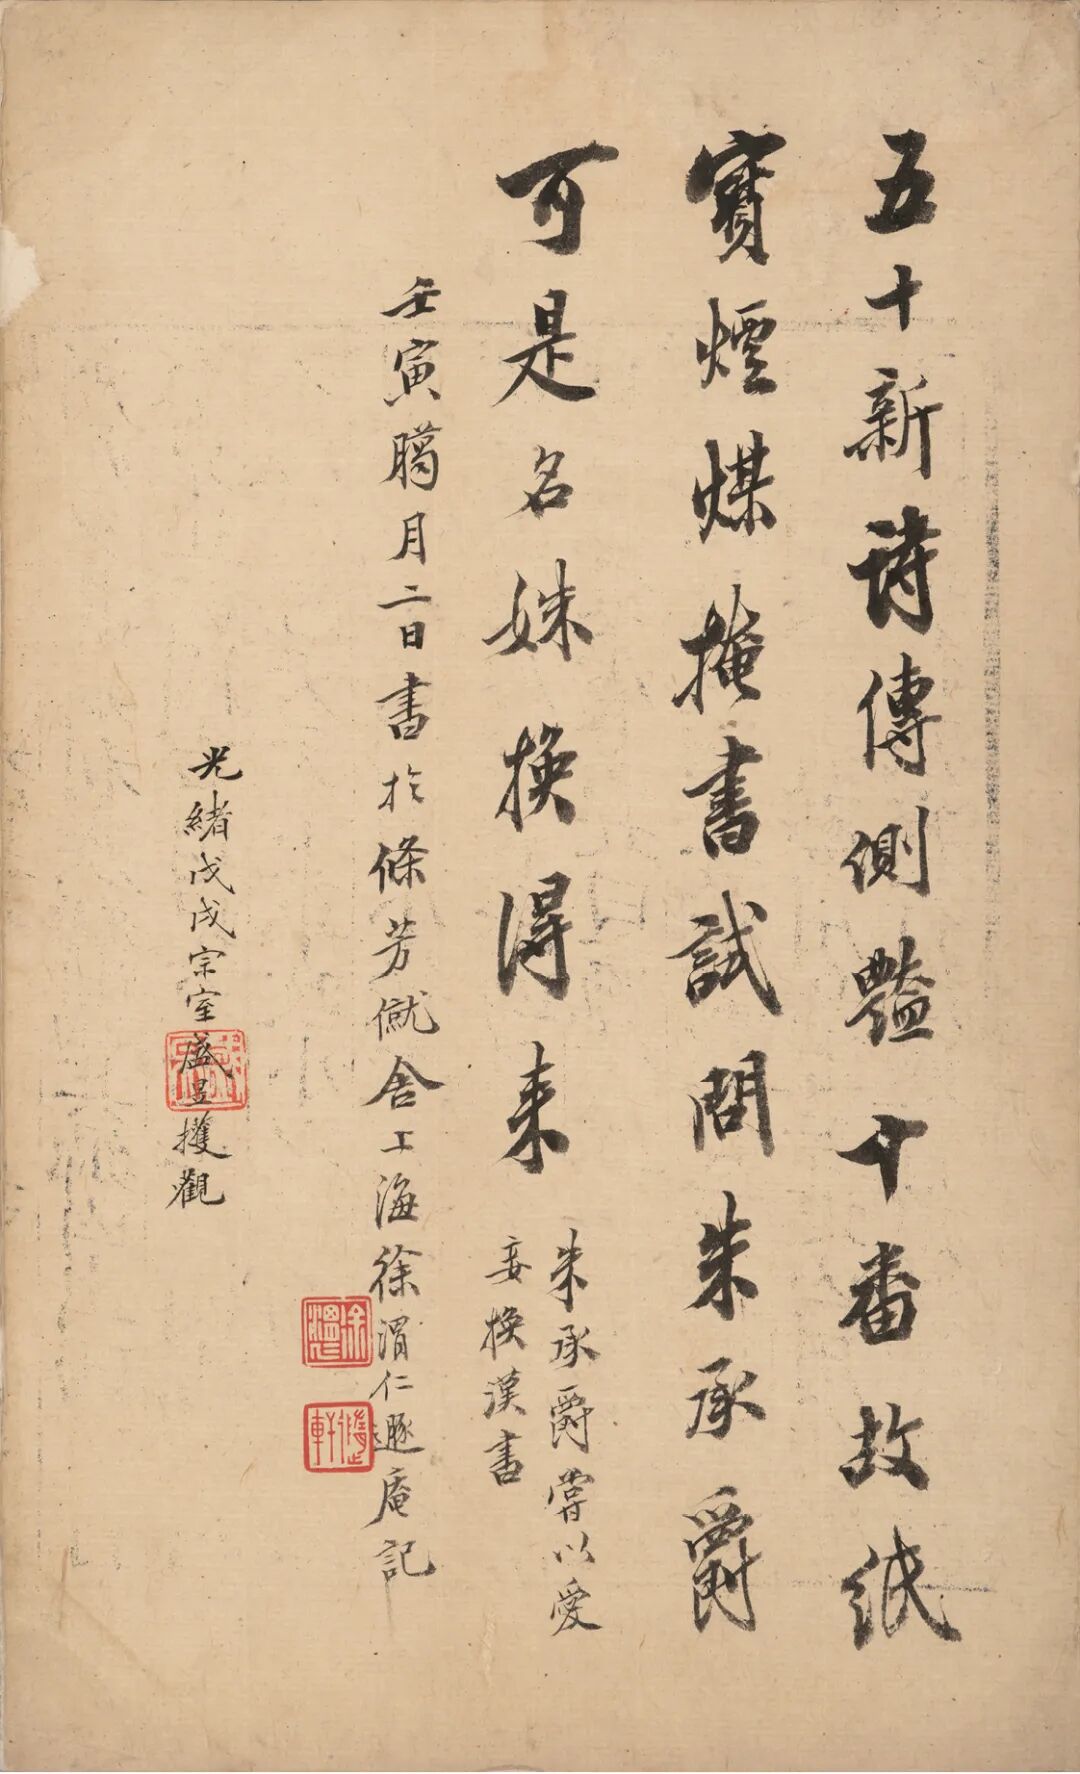 五十新詩傳側豔十番故紙
寶煙煤掩書試問朱承爵
可是名姝換得來
朱承爵嘗以愛
妾換漢書
壬寅臈月二日書於條芳僦舍上海徐渭仁遯庵記
徐渭仁
隨軒
光緒戊戌宗室盛昱獲觀